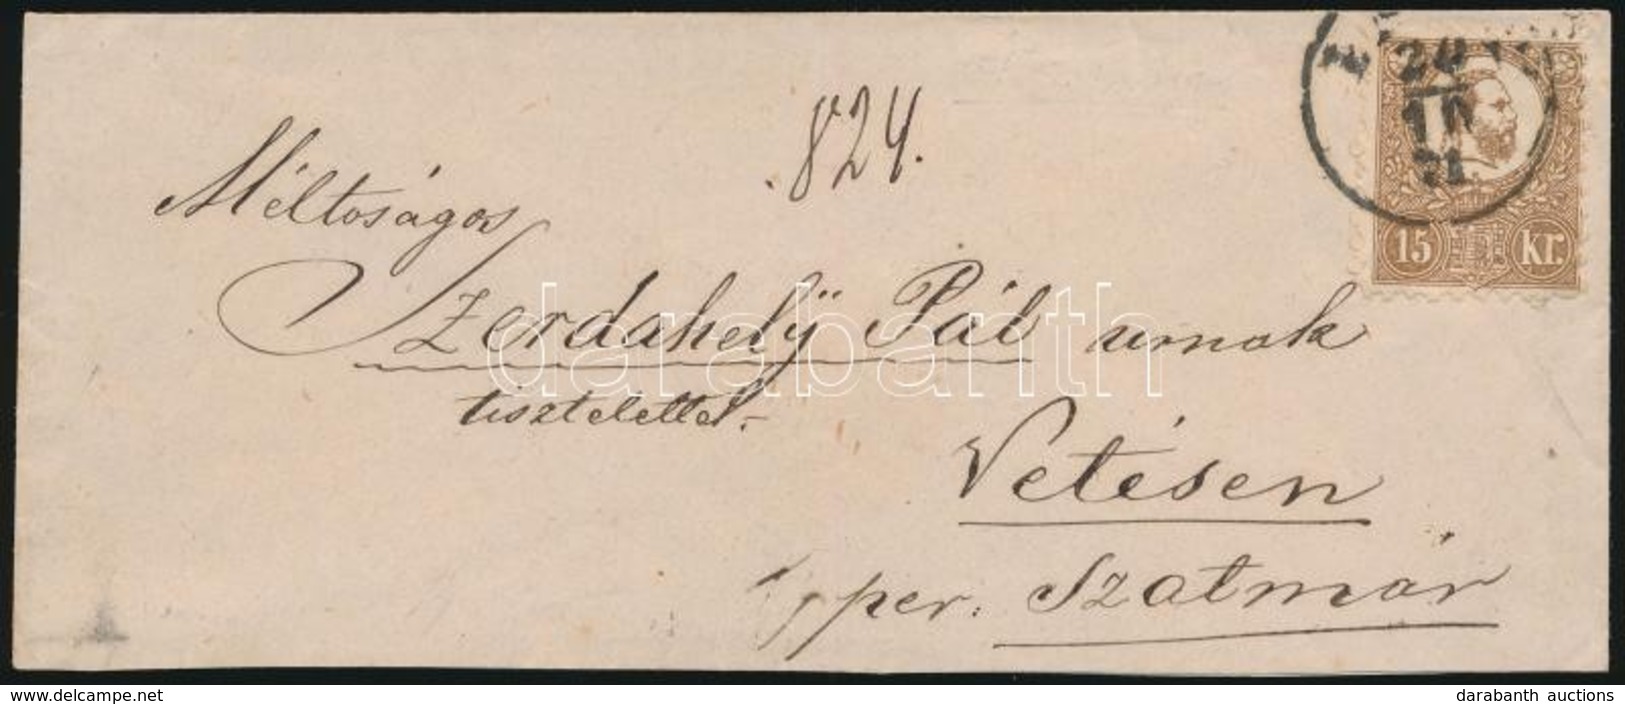 .824.
20
10
71
15 Kr.
Méltoságos
Szerdahelÿ Pál urnak
tisztelettel.-
Vetésen
per. Szatmár
darabanth
delcampe.net
darabanth auctions